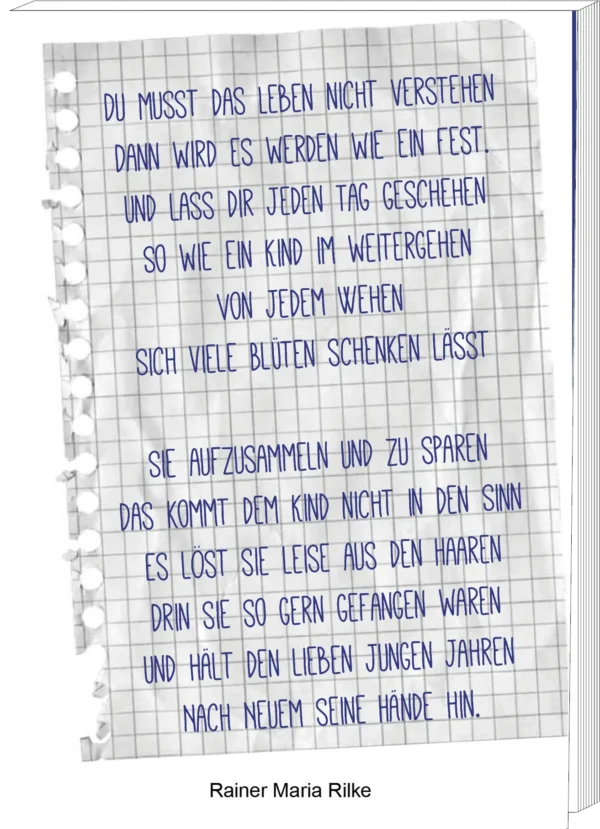 DU MUSST DAS LEBEN NICHT VERSTEHEN
DANN WIRD ES WERDEN WIE EIN FEST.
UND LASS DIR JEDEN TAG GESCHEHEN
SO WIE EIN KIND IM WEITERGEHEN
VON JEDEM WEHEN
SICH VIELE BLÜTEN SCHENKEN LÄSST
SIE AUFZUSAMMELN UND ZU SPAREN
DAS KOMMT DEM KIND NICHT IN DEN SINN
ES LÖST SIE LEISE AUS DEN HAAREN
DRIN SIE SO GERN GEFANGEN WAREN
UND HÄLT DEN LIEBEN JUNGEN JAHREN
NACH NEUEM SEINE HÄNDE HIN.
Rainer Maria Rilke